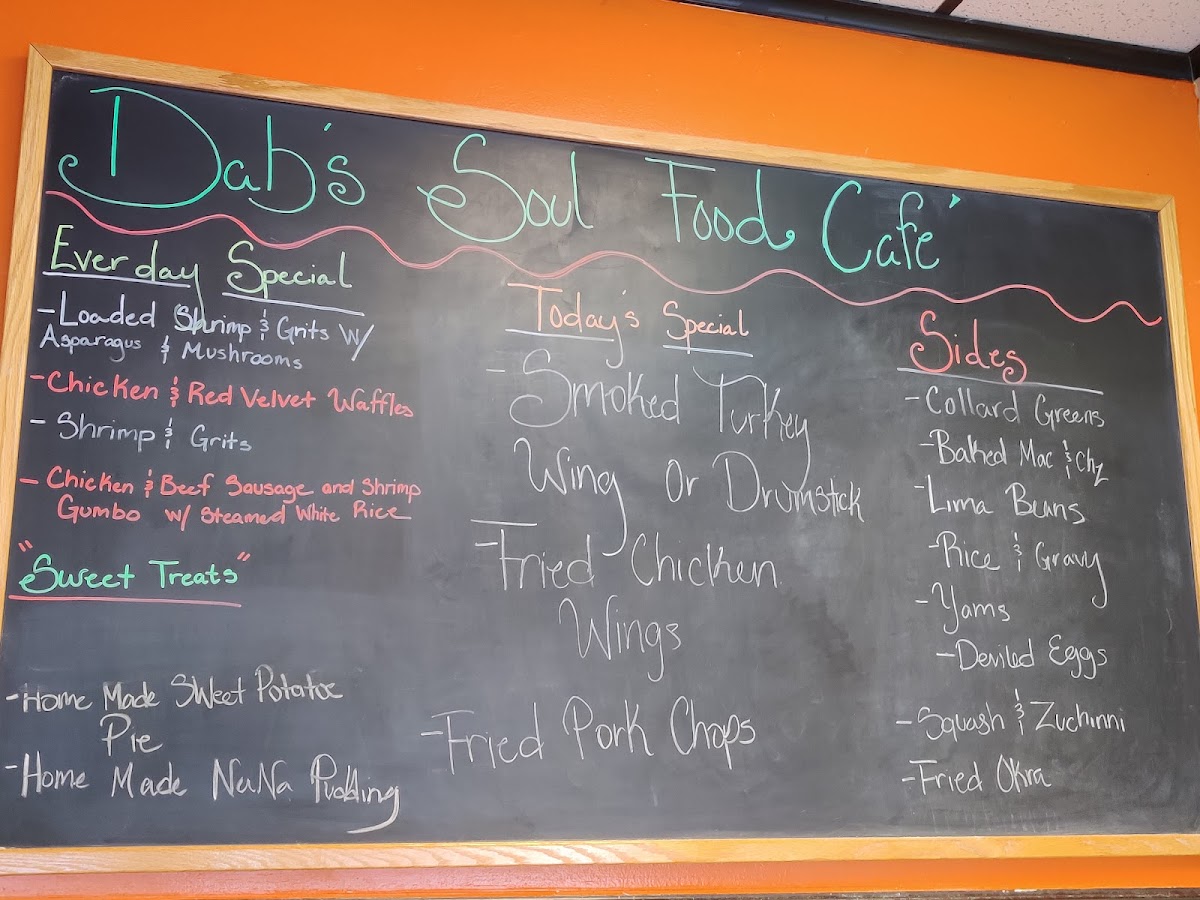 Dab's Soul Food Café
Everday Special
-Loaded Shrimp & Grits W/
Asparagus & Mushrooms
-Chicken & Red Velvet Waffles
- Shrimp & Grits
- Chicken & Beef Sausage and Shrimp
Gumbo w/ Steamed White Rice
"Sweet Treats"
-Home Made Sweet Potatoe
Pie
-Home Made NaNa Pudding
Today's Special
-Smoked Turkey
Wing or Drumstick
-Fried Chicken
Wings
-Fried Pork Chops
Sides
-Collard Greens
-Baked Mac & Chz
-Lima Beans
-Rice & Gravy
-Yams
-Deviled Eggs
-Squash & Zuchinni
-Fried Okra